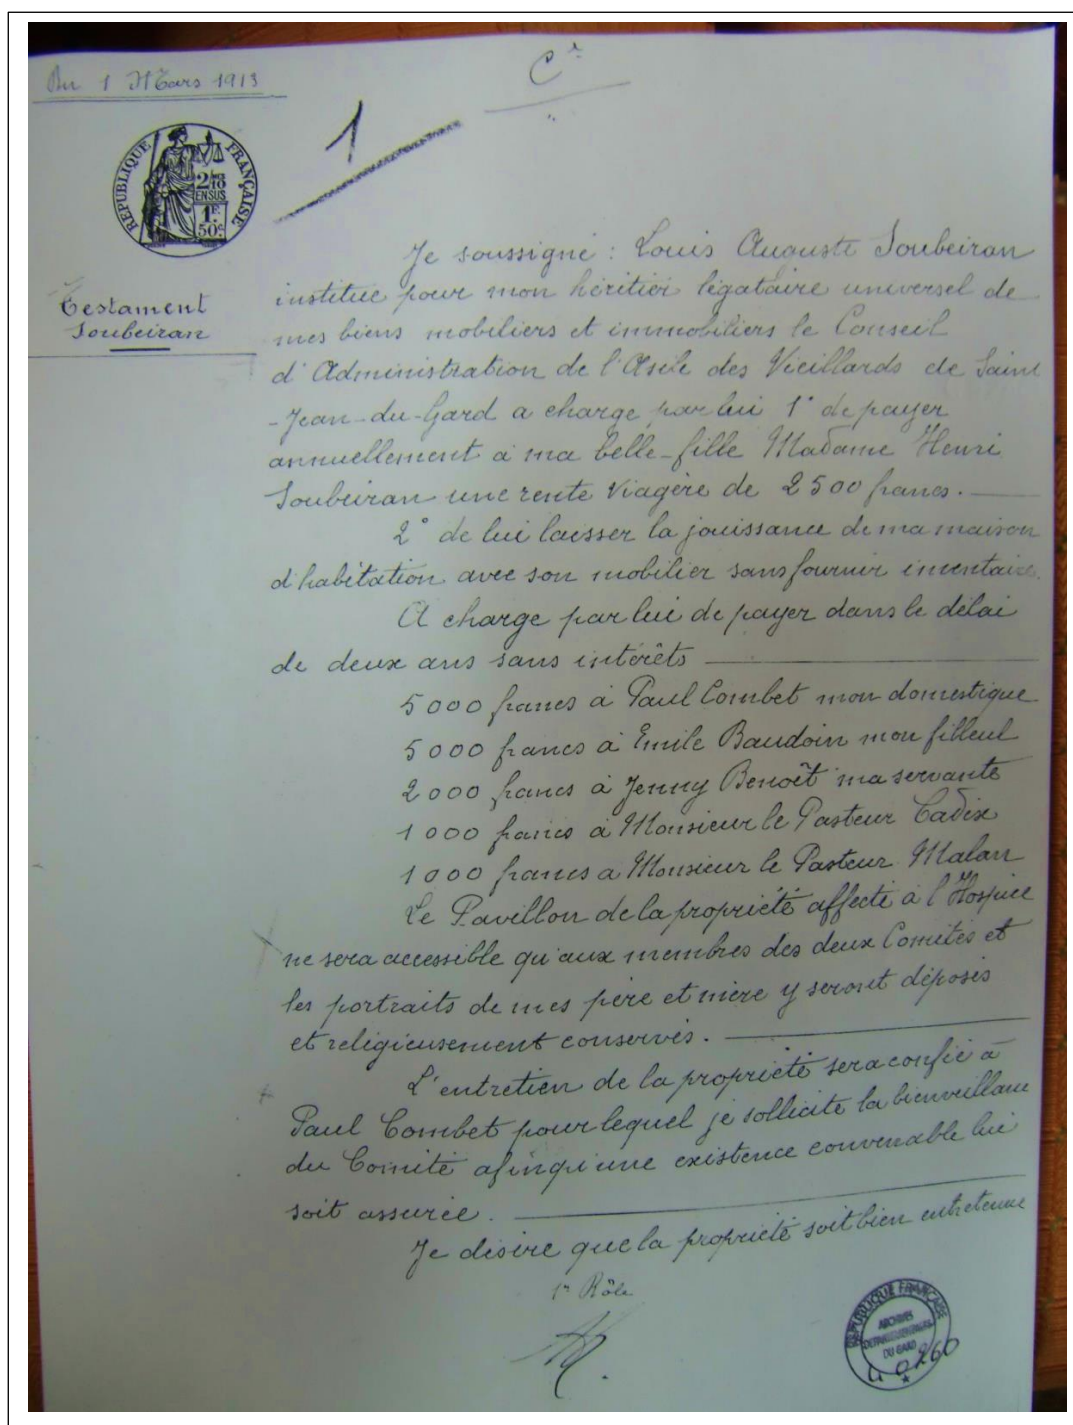 Du 1 Mars 1913
Cᵉ
1
RÉPUBLIQUE FRANÇAISE
2/10
EN SUS
1F.
50c
Testament
Soubeiran
Je soussigné : Louis Auguste Soubeiran
institue pour mon héritier légataire universel de
mes biens mobiliers et immobiliers le Conseil
d'Administration de l'Asile des Vieillards de Saint
-Jean-du-Gard a charge par lui 1° de payer
annuellement à ma belle-fille Madame Henri
Soubeiran une rente viagère de 2500 francs.
2° de lui laisser la jouissance de ma maison
d'habitation avec son mobilier sans fournir inventaire.
A charge par lui de payer dans le délai
de deux ans sans intérêts
5000 francs à Paul Combet mon domestique
5000 francs à Emile Baudoin mon filleul
2000 francs à Jenny Benoît ma servante
1000 francs à Monsieur le Pasteur Cadix
1000 francs a Monsieur le Pasteur Malan
Le Pavillon de la propriété affecté à l'Hospice
ne sera accessible qu'aux membres des deux Comités et
les portraits de mes père et mère y seront déposés
et religieusement conservés.
L'entretien de la propriété sera confié à
Paul Combet pour lequel je sollicite la bienveillance
du Comité afin qu'une existence convenable lui
soit assurée.
Je désire que la propriété soit bien entretenue
1er Rôle
RÉPUBLIQUE FRANÇAISE
ARCHIVES
DÉPARTEMENTALES
DU GARD